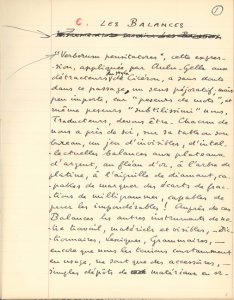 1
C. LES BALANCES
"Verborum pensitatores", cette expres-
sion, appliquée par Aulu-Gelle aux
détracteurs de Cicéron, a sans doute
dans ce passage un sens péjoratif, mais
peu importe, car "peseurs de mots", et
même peseurs "subtilissimi" nous,
Traducteurs, devons être. Chacun de
nous a près de soi, sur sa table ou son
bureau, un jeu d'invisibles, d'intel-
lectuelles balances aux plateaux
d'argent, au fléau d'or, à l'arbre de
platine, à l'aiguille de diamant, ca-
pables de marquer des écarts de frac-
tions de milligrammes, capables de
peser les impondérables! Auprès de ces
Balances les autres instruments de no-
tre travail, matériels et visibles, – Dic-
tionnaires, Lexiques, Grammaires, –
encore que nous les tenions constamment
en usage, ne sont que des accessoires,
simples dépôts de matériaux or-